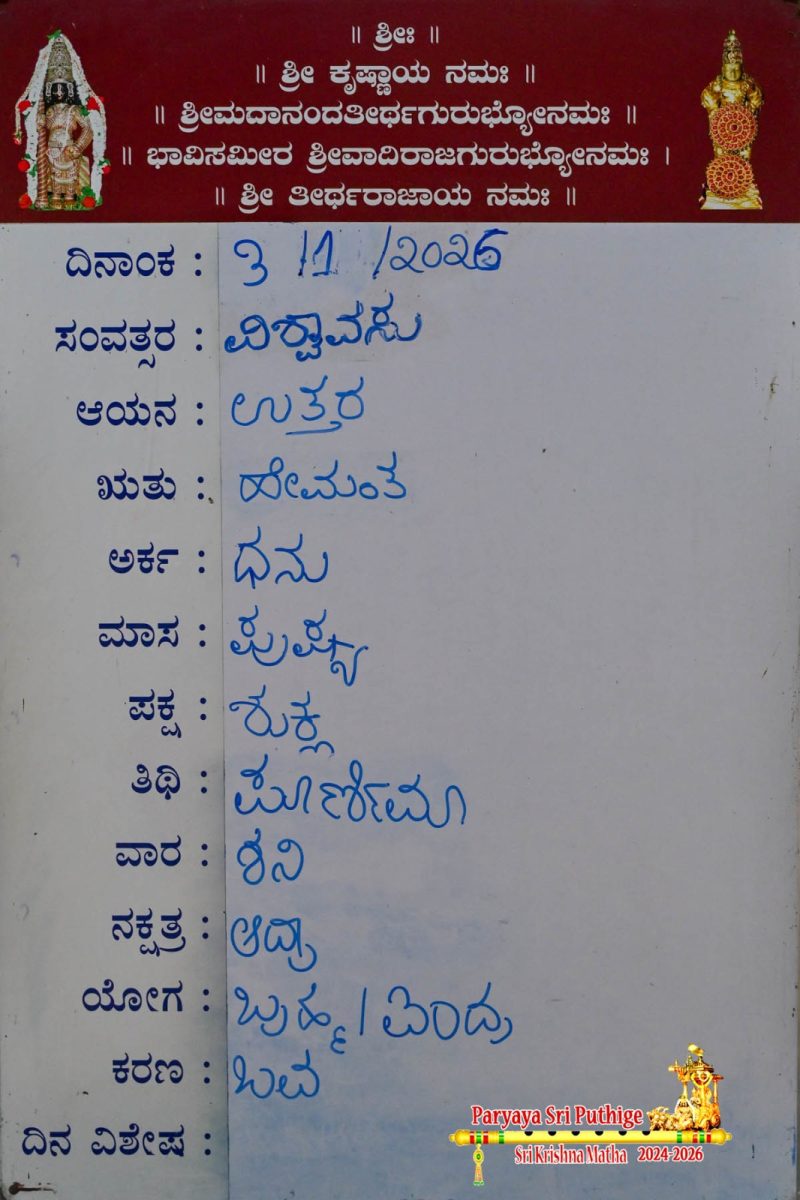 ॥ ಶ್ರೀಃ ॥
॥ ಶ್ರೀ ಕೃಷ್ಣಾಯ ನಮಃ ॥
॥ ಶ್ರೀಮದಾನಂದತೀರ್ಥಗುರುಭ್ಯೋನಮಃ ॥
॥ ಭಾವಿಸಮೀರ ಶ್ರೀವಾದಿರಾಜಗುರುಭ್ಯೋನಮಃ ।
॥ ಶ್ರೀ ತೀರ್ಥರಾಜಾಯ ನಮಃ ॥
ದಿನಾಂಕ : 3 /1 /2026
ಸಂವತ್ಸರ : ವಿಶ್ವಾವಸು
ಆಯನ : ಉತ್ತರ
ಋತು : ಹೇಮಂತ
ಅರ್ಕ : ಧನು
ಮಾಸ : ಪುಷ್ಯ
ಪಕ್ಷ : ಶುಕ್ಲ
ತಿಥಿ : ಪೂರ್ಣಿಮಾ
ವಾರ : ಶನಿ
ನಕ್ಷತ್ರ : ಆದ್ರಾ
ಯೋಗ : ಬ್ರಹ್ಮ / ಐಂದ್ರ
ಕರಣ : ಬವ
ದಿನ ವಿಶೇಷ :
Paryaya Sri Puthige
Sri Krishna Matha 2024-2026